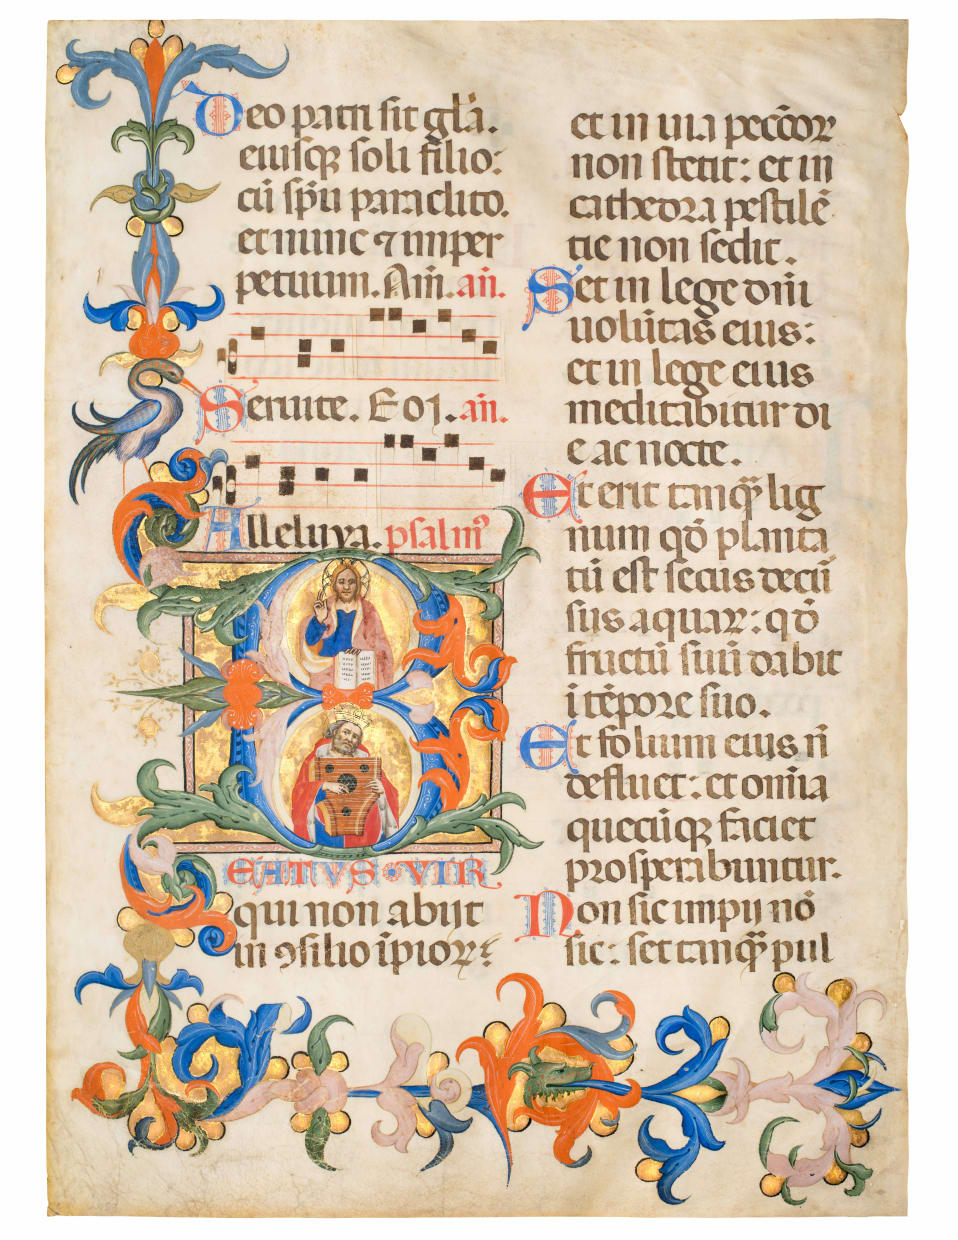 Deo patri sit gl̄a.
eiusq̄ soli filio:
cū sp̄u paraclito.
et nunc ⁊ in per
petuum. Am̄. an̄.
Seruite. E o ı. an̄.
Alleluya. psalm⁹
BEATVS · VIR
qui non abijt
in ꝯsilio īpioꝝ:
et in uia pecc̄oꝝ
non stetit: et in
cathedra pestilē
tie non sedit.
Set in lege dn̄i
uolūtas eius:
et in lege eius
meditabitur di
e ac nocte.
Et erit tanq̄ lig
num qd̄ planta
tū est secus decū
sus aquaꝝ: qd̄
fructū suū dabit
ī tēpore suo.
Et folium eius n̄
defluet: et om̄ia
quecūqꝫ faciet
prosperabuntur.
Non sic impij nō
sic: set tanq̄ pul